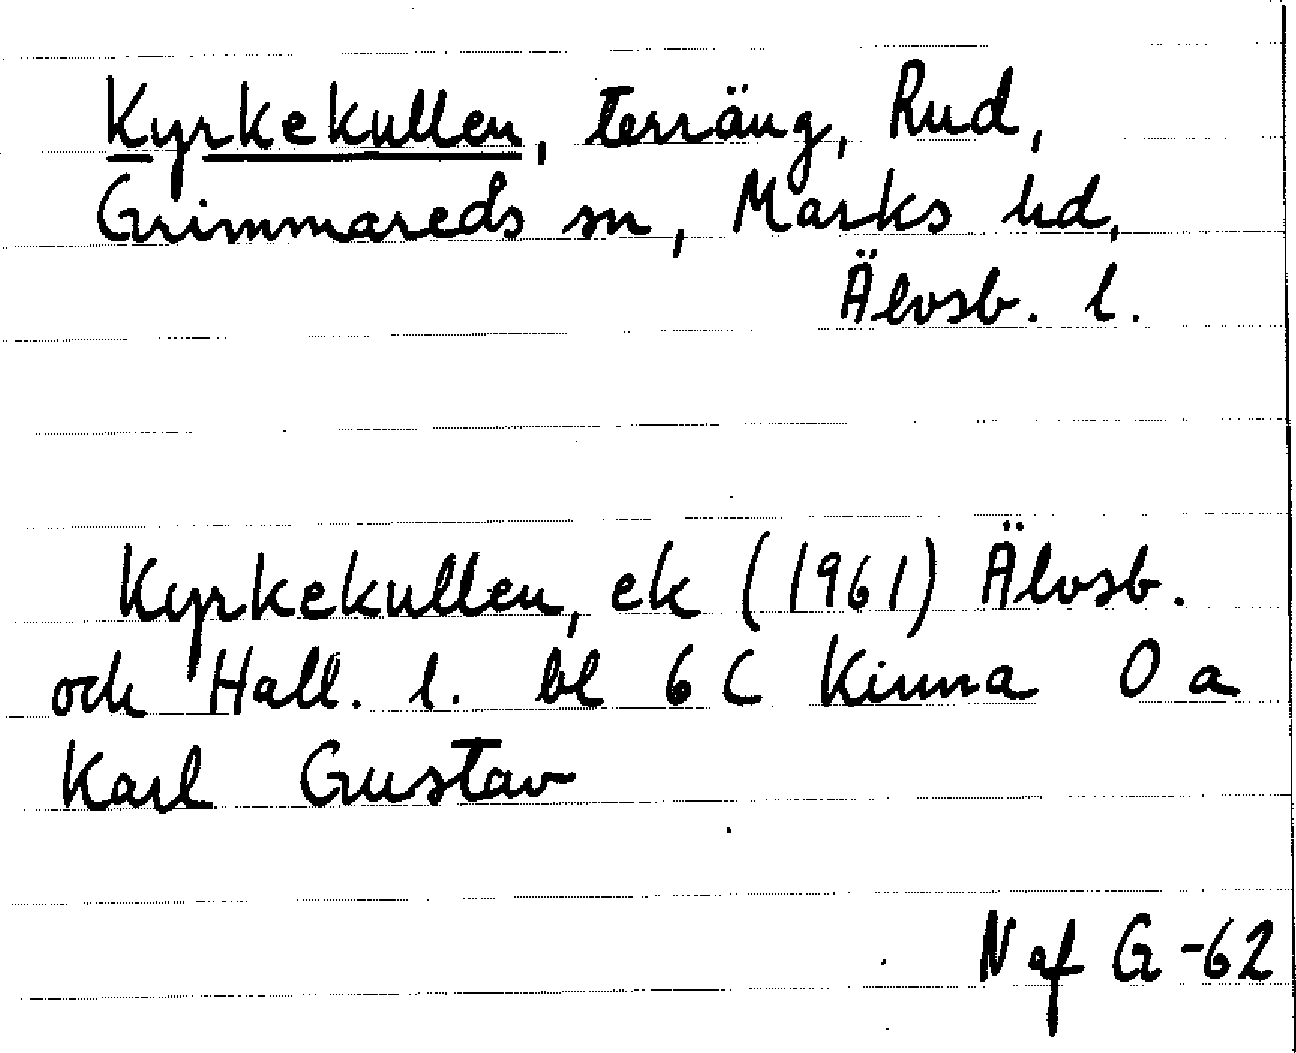 Kyrkekullen, terräng, Rud,
Grimmareds sn, Marks hd,
Älvsb. l.
Kyrkekullen, ek (1961) Älvsb.
och Hall. l. bl 6 C Kinna 0 a
Karl Gustav
N af G -62